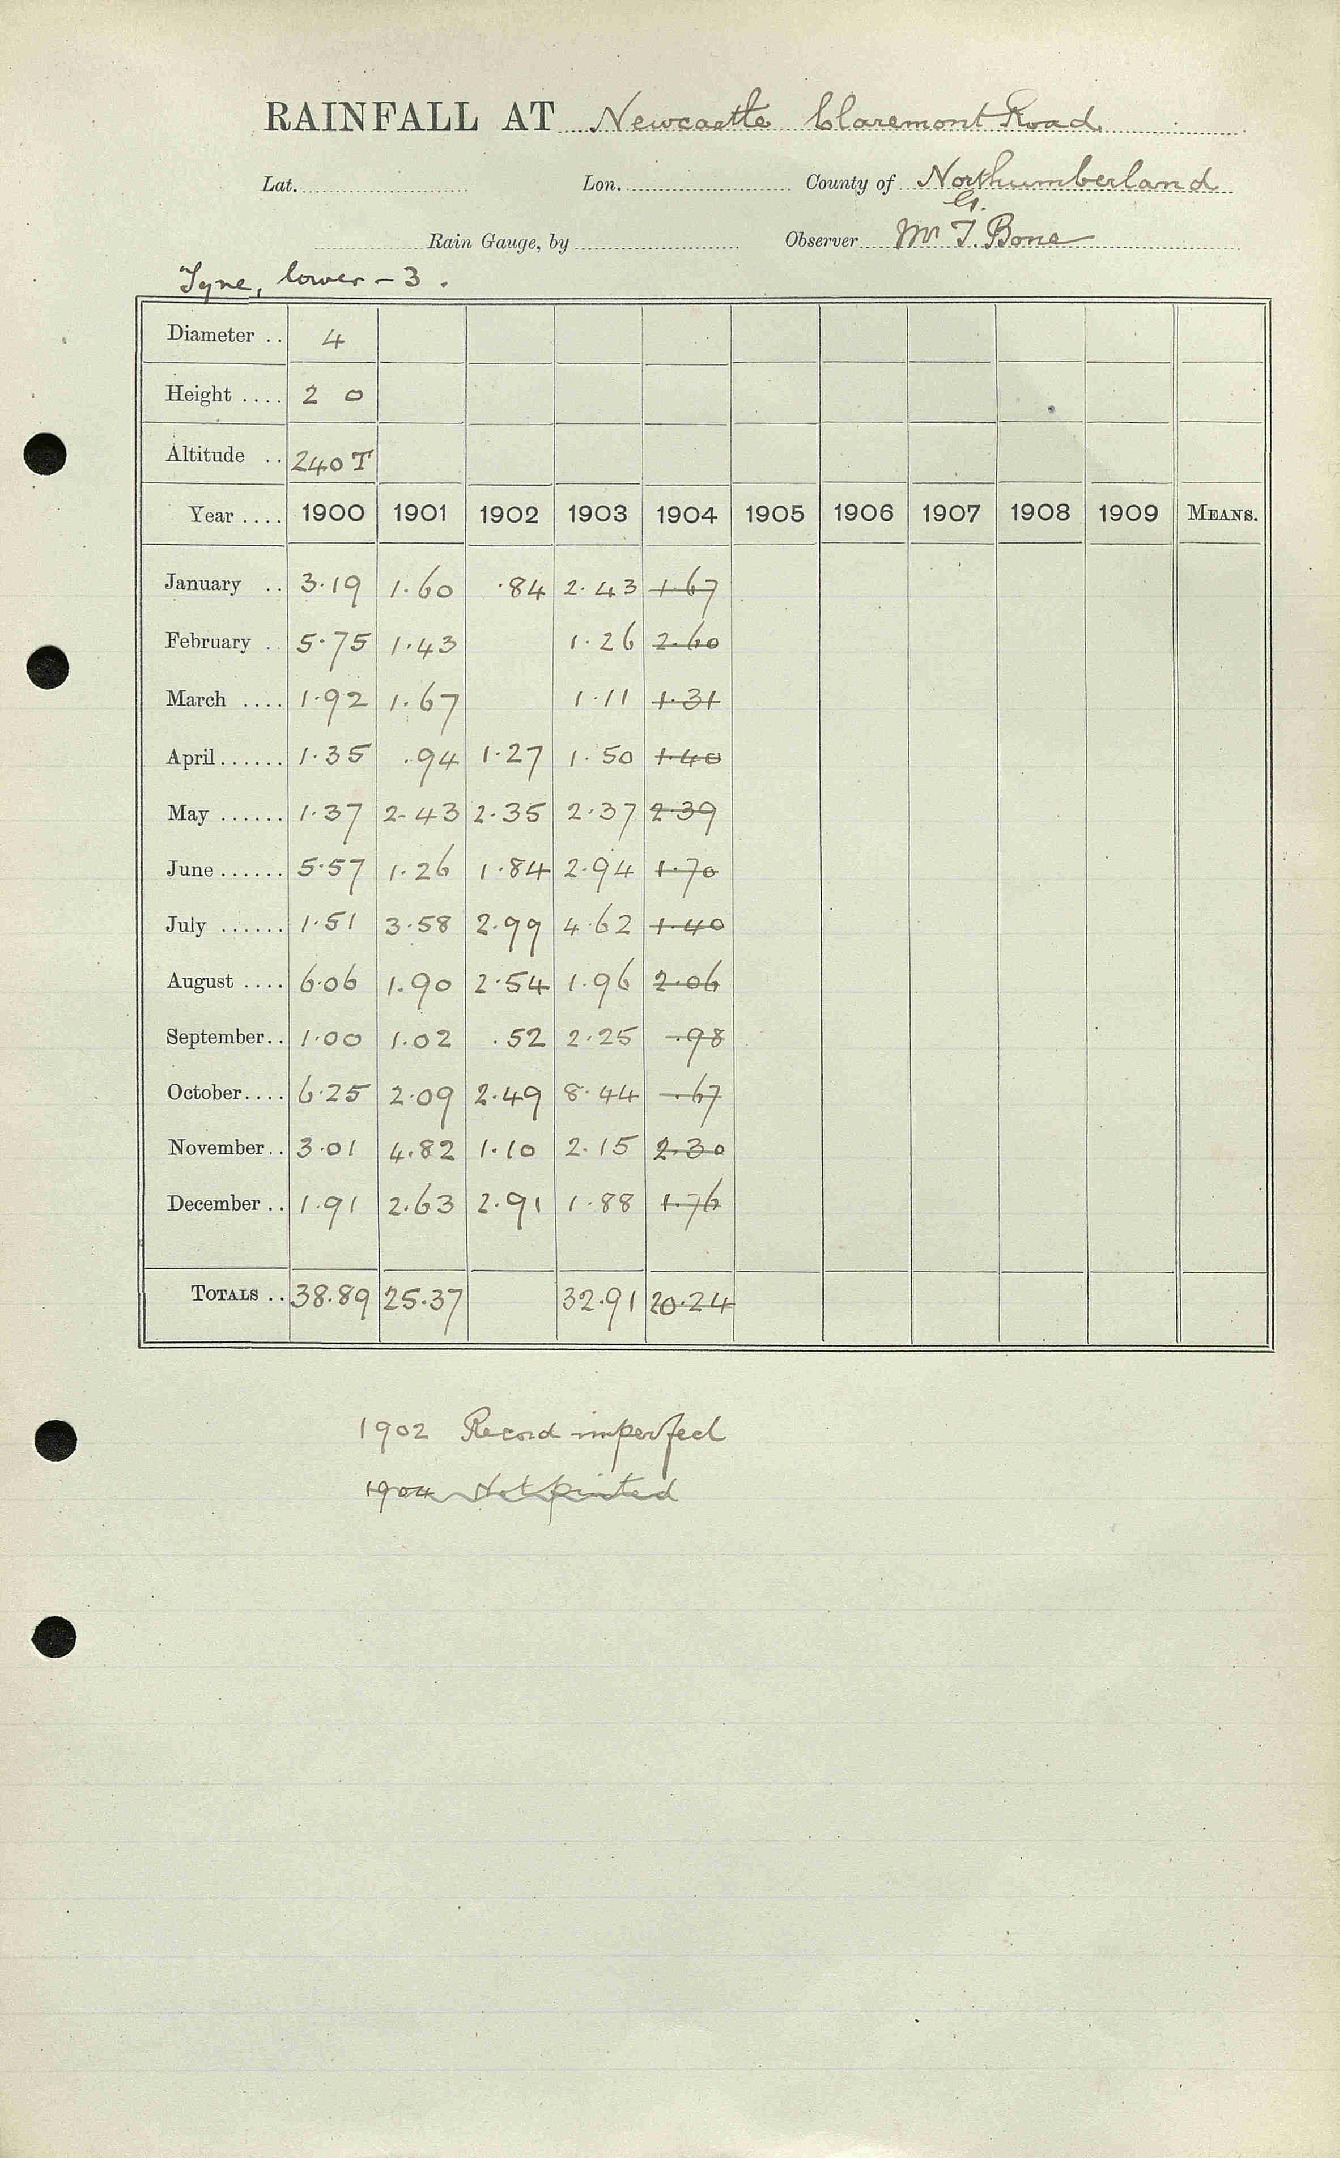 RAINFALL AT Newcastle Claremont Road
Lat. Lon. County of Northumberland
G.
Rain Gauge, by Observer Mr T. Bone
Tyne, lower - 3.
Diameter .. 4
Height .... 2 0
Altitude .. 240 T
Year .... 1900 1901 1902 1903 1904 1905 1906 1907 1908 1909 MEANS.
January .. 3.19 1.60 .84 2.43 1.67
February .. 5.75 1.43 1.26 2.60
March .... 1.92 1.67 1.11 1.31
April...... 1.35 .94 1.27 1.50 1.40
May ...... 1.37 2.43 2.35 2.37 2.39
June...... 5.57 1.26 1.84 2.94 1.70
July ...... 1.51 3.58 2.99 4.62 1.40
August .... 6.06 1.90 2.54 1.96 2.06
September.. 1.00 1.02 .52 2.25 .98
October.... 6.25 2.09 2.49 8.44 .67
November.. 3.01 4.82 1.10 2.15 2.30
December.. 1.91 2.63 2.91 1.88 1.76
TOTALS .. 38.89 25.37 32.91 20.24
1902 Record imperfect
1904 Not printed